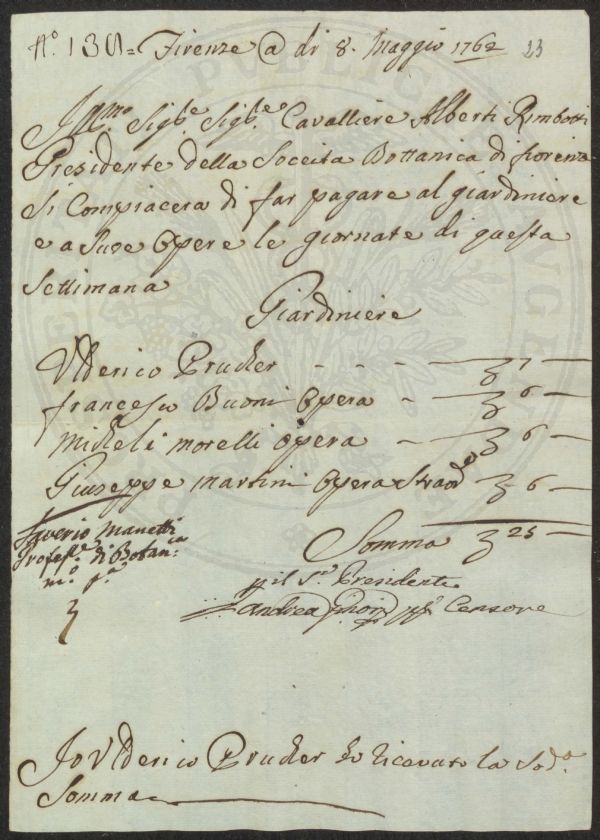 N.º 130 = Firenze @ di 8. Maggio 1762 23
Ill.mo Sig.re Sig.re Cavalliere Alberti Rimbotti
Presidente della Soceita Bottanica di fiorenza
Si Compiacera di far pagare al giardiniere
e a Sue Opere le giornate di questa
Settimana
Giardiniere
Vlderico Prucker - - - 7 —
francesco Buoni Opera - 6 —
Micheli morelli Opera - 6 —
Giuseppe martini Opera Straord.º 6 —
Saverio Manetti
Profess.re di Botan.ca
m.º p.ª
Somma 25 —
p il S.r Presidente
Andrea Censore
Io Vlderico Prucker ho Ricevuto la Sod.ª
Somma